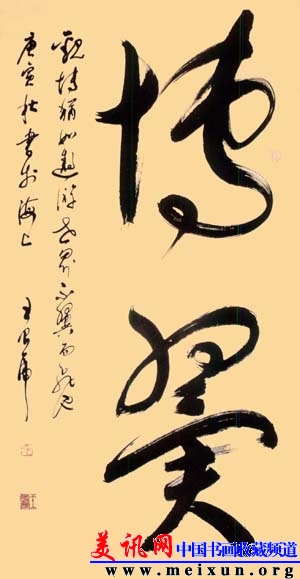 博翼
觀博猶如遨游世界不翼而飛也
庚寅秋書於海上
王
美讯网 中国书画收藏频道
www.meixun.org